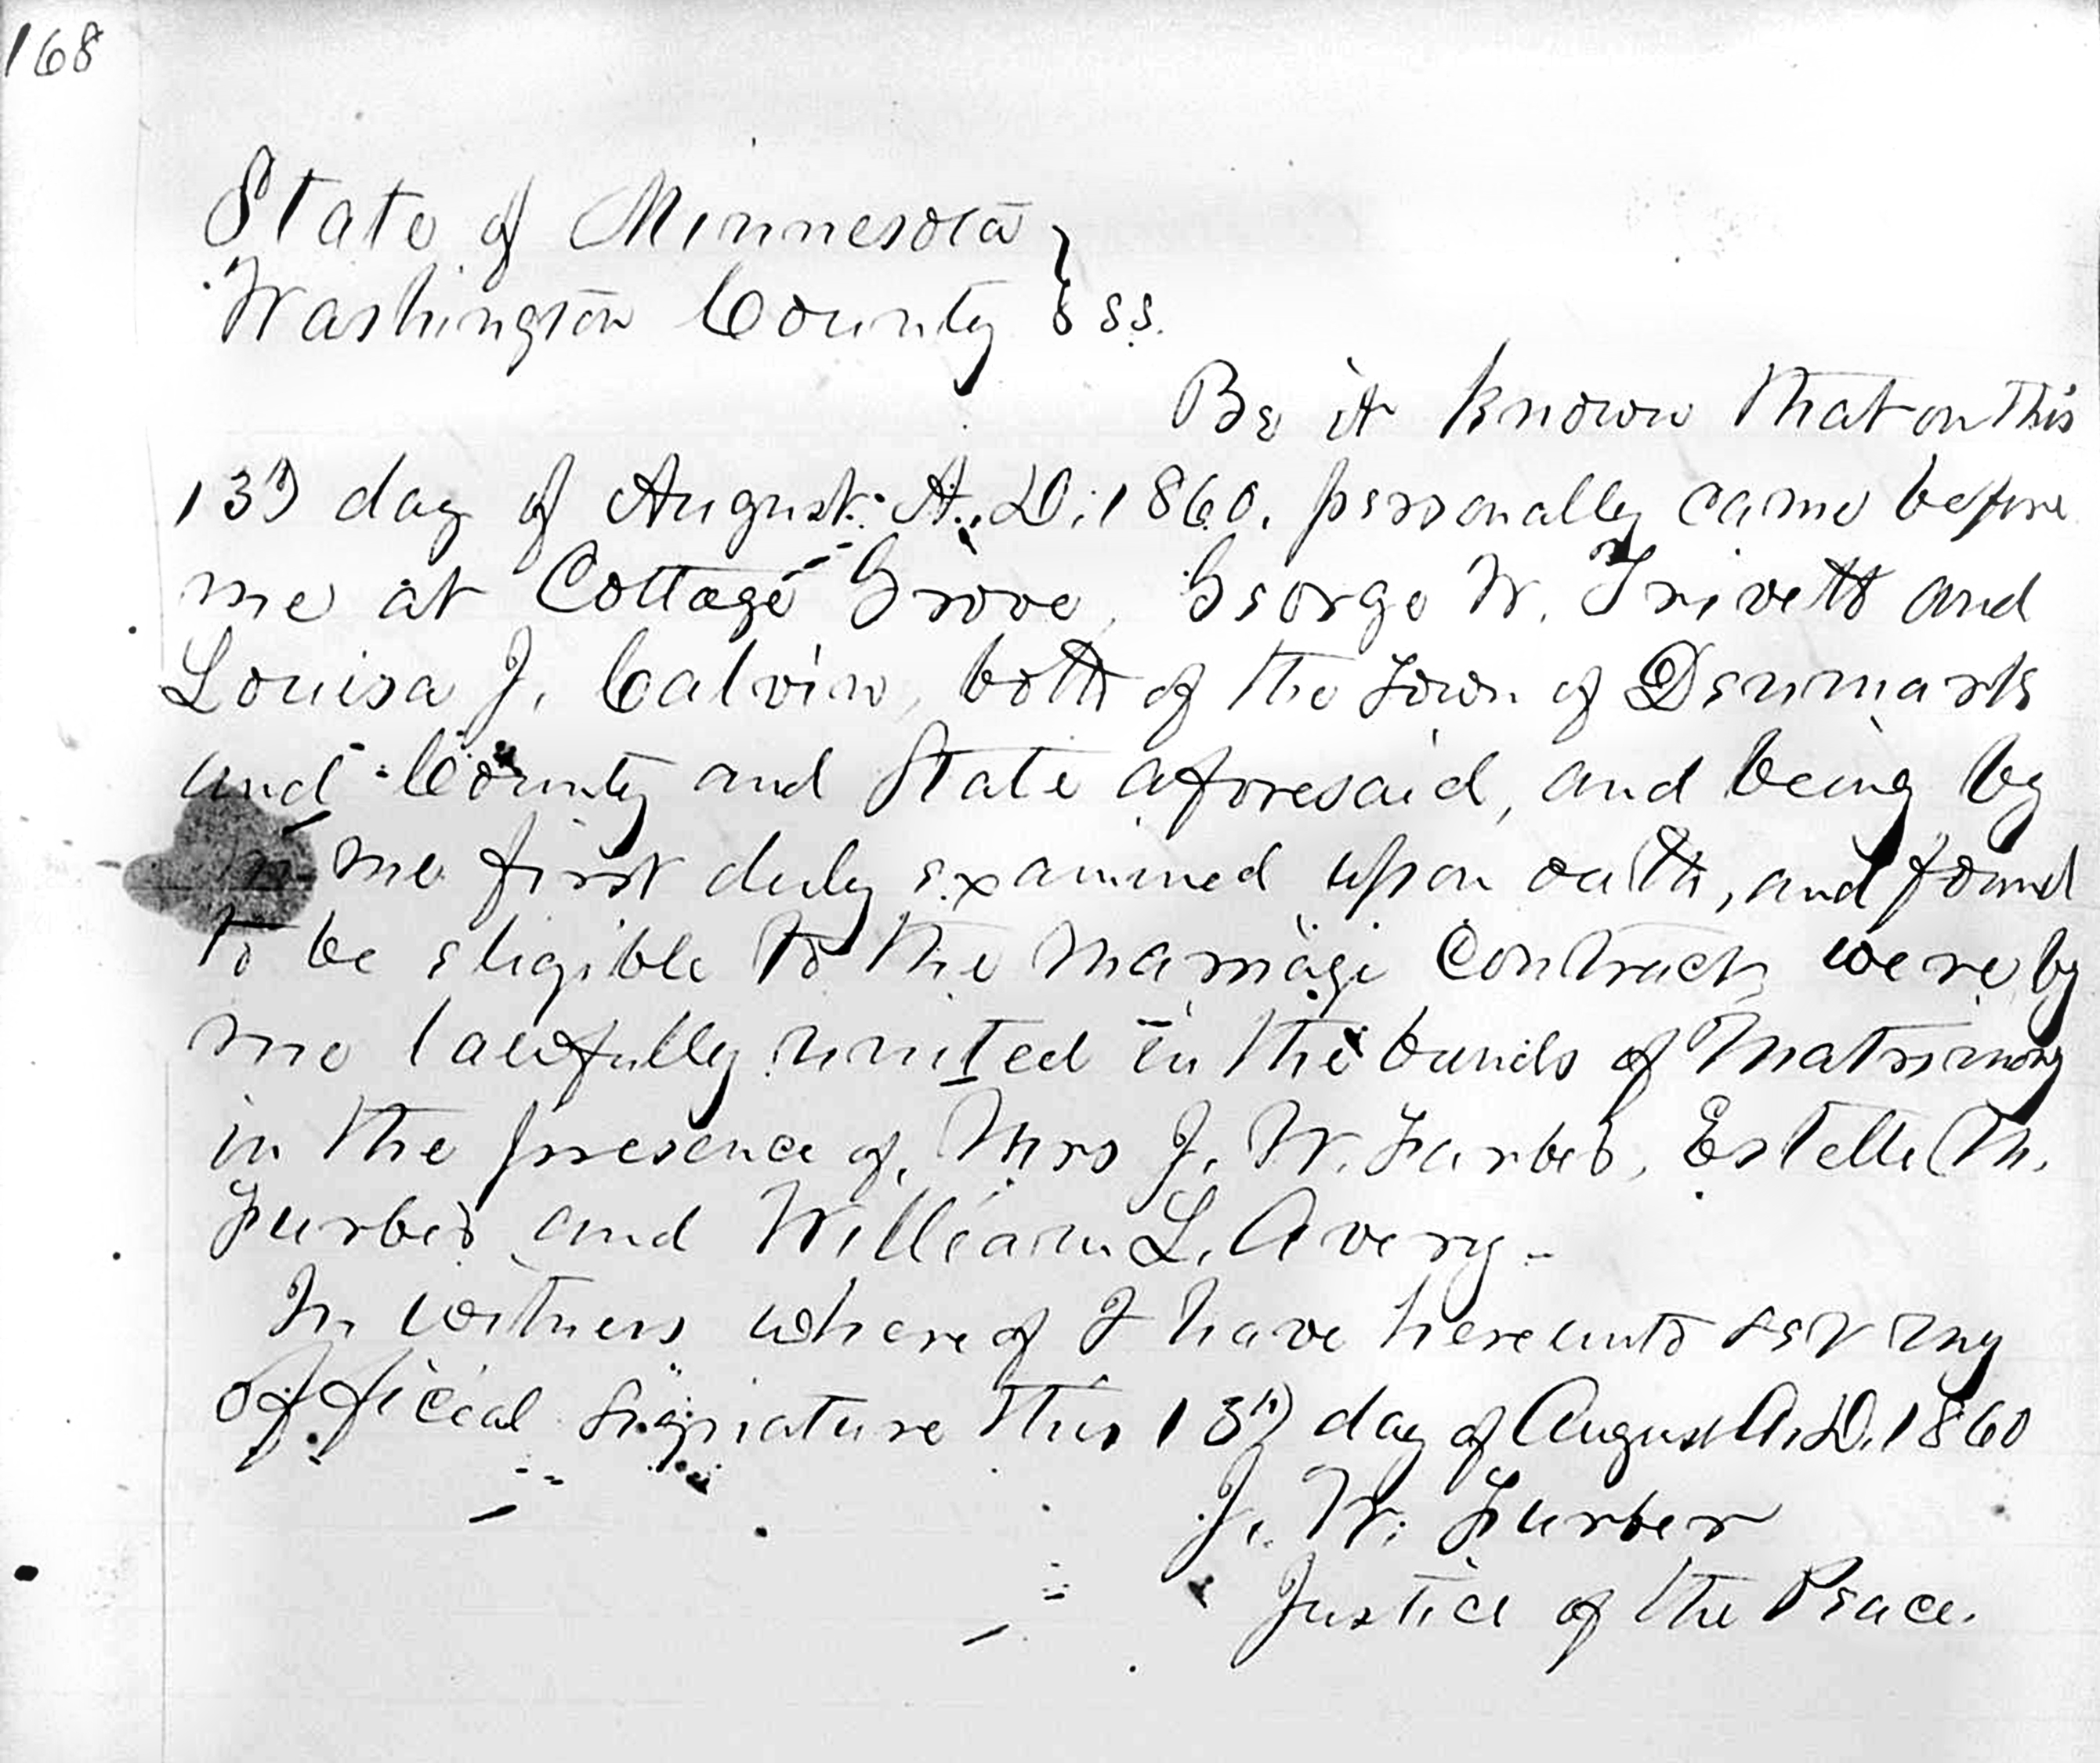 168
State of Minnesota }
Washington County } ss.
Be it known that on this
13th day of August A.D. 1860. personally came before
me at Cottage Grove, George W. Trivett and
Louisa J. Calvin, both of the Town of Denmark
and County and State aforesaid, and being by
me first duly examined upon oath, and found
to be eligible to the marriage contract, were by
me lawfully united in the bands of Matrimony
in the presence of, Mrs J. W. Furber, Estelle M.
Furber and William L. Avery -
In witness whereof I have hereunto set my
official signature this 13th day of August A.D. 1860
J. W. Furber
Justice of the Peace.